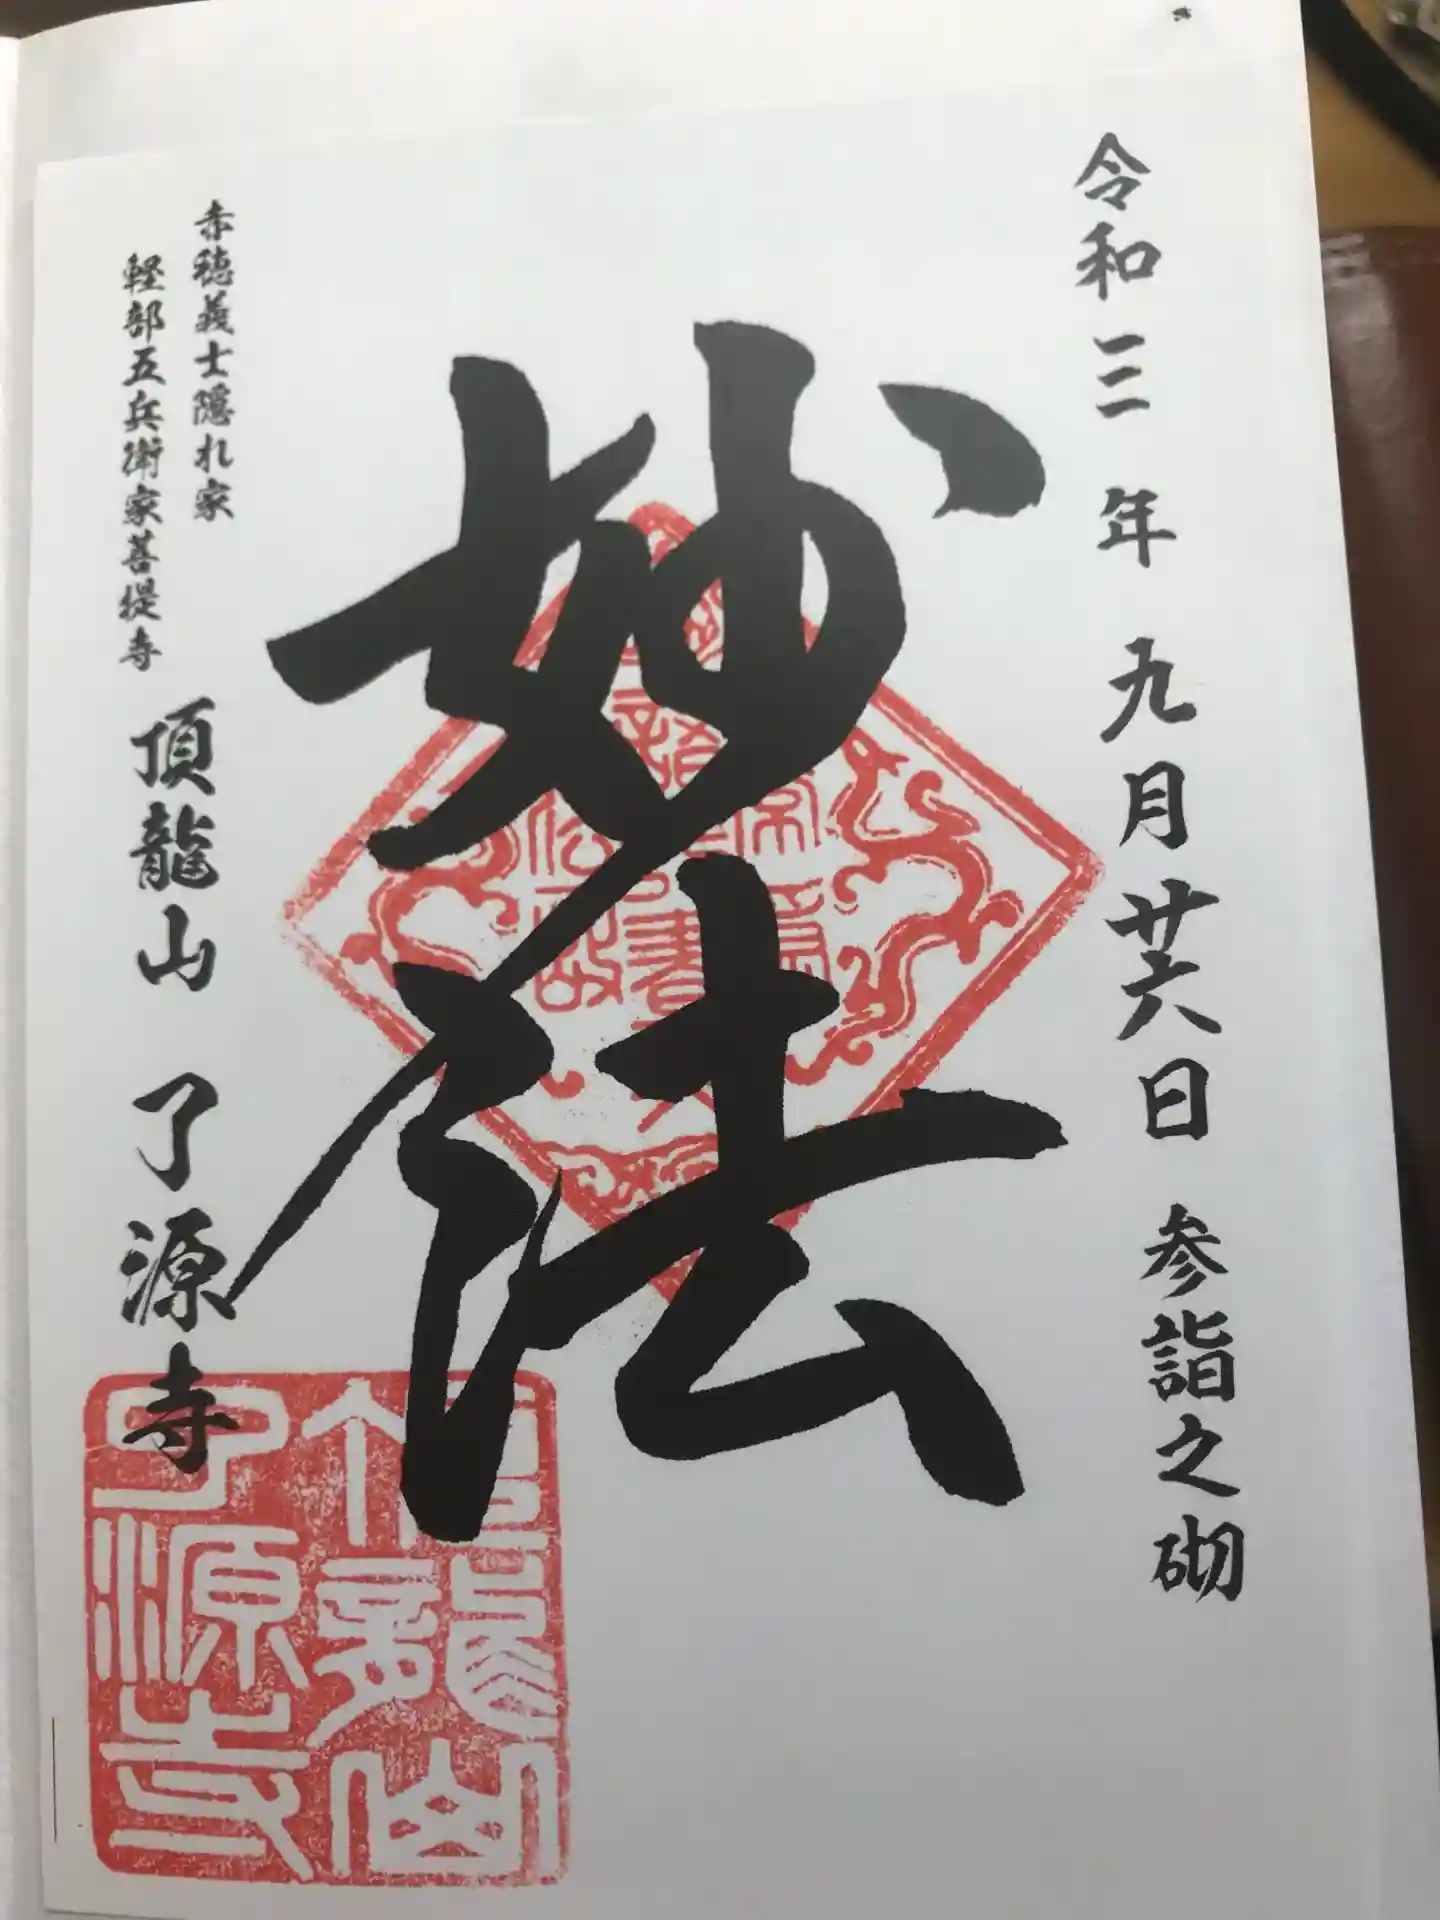 令和三年九月廿六日 参詣之砌
妙法
赤穂義士隠れ家
軽部五兵衛家菩提寺
頂龍山 了源寺
頂龍山
了源寺